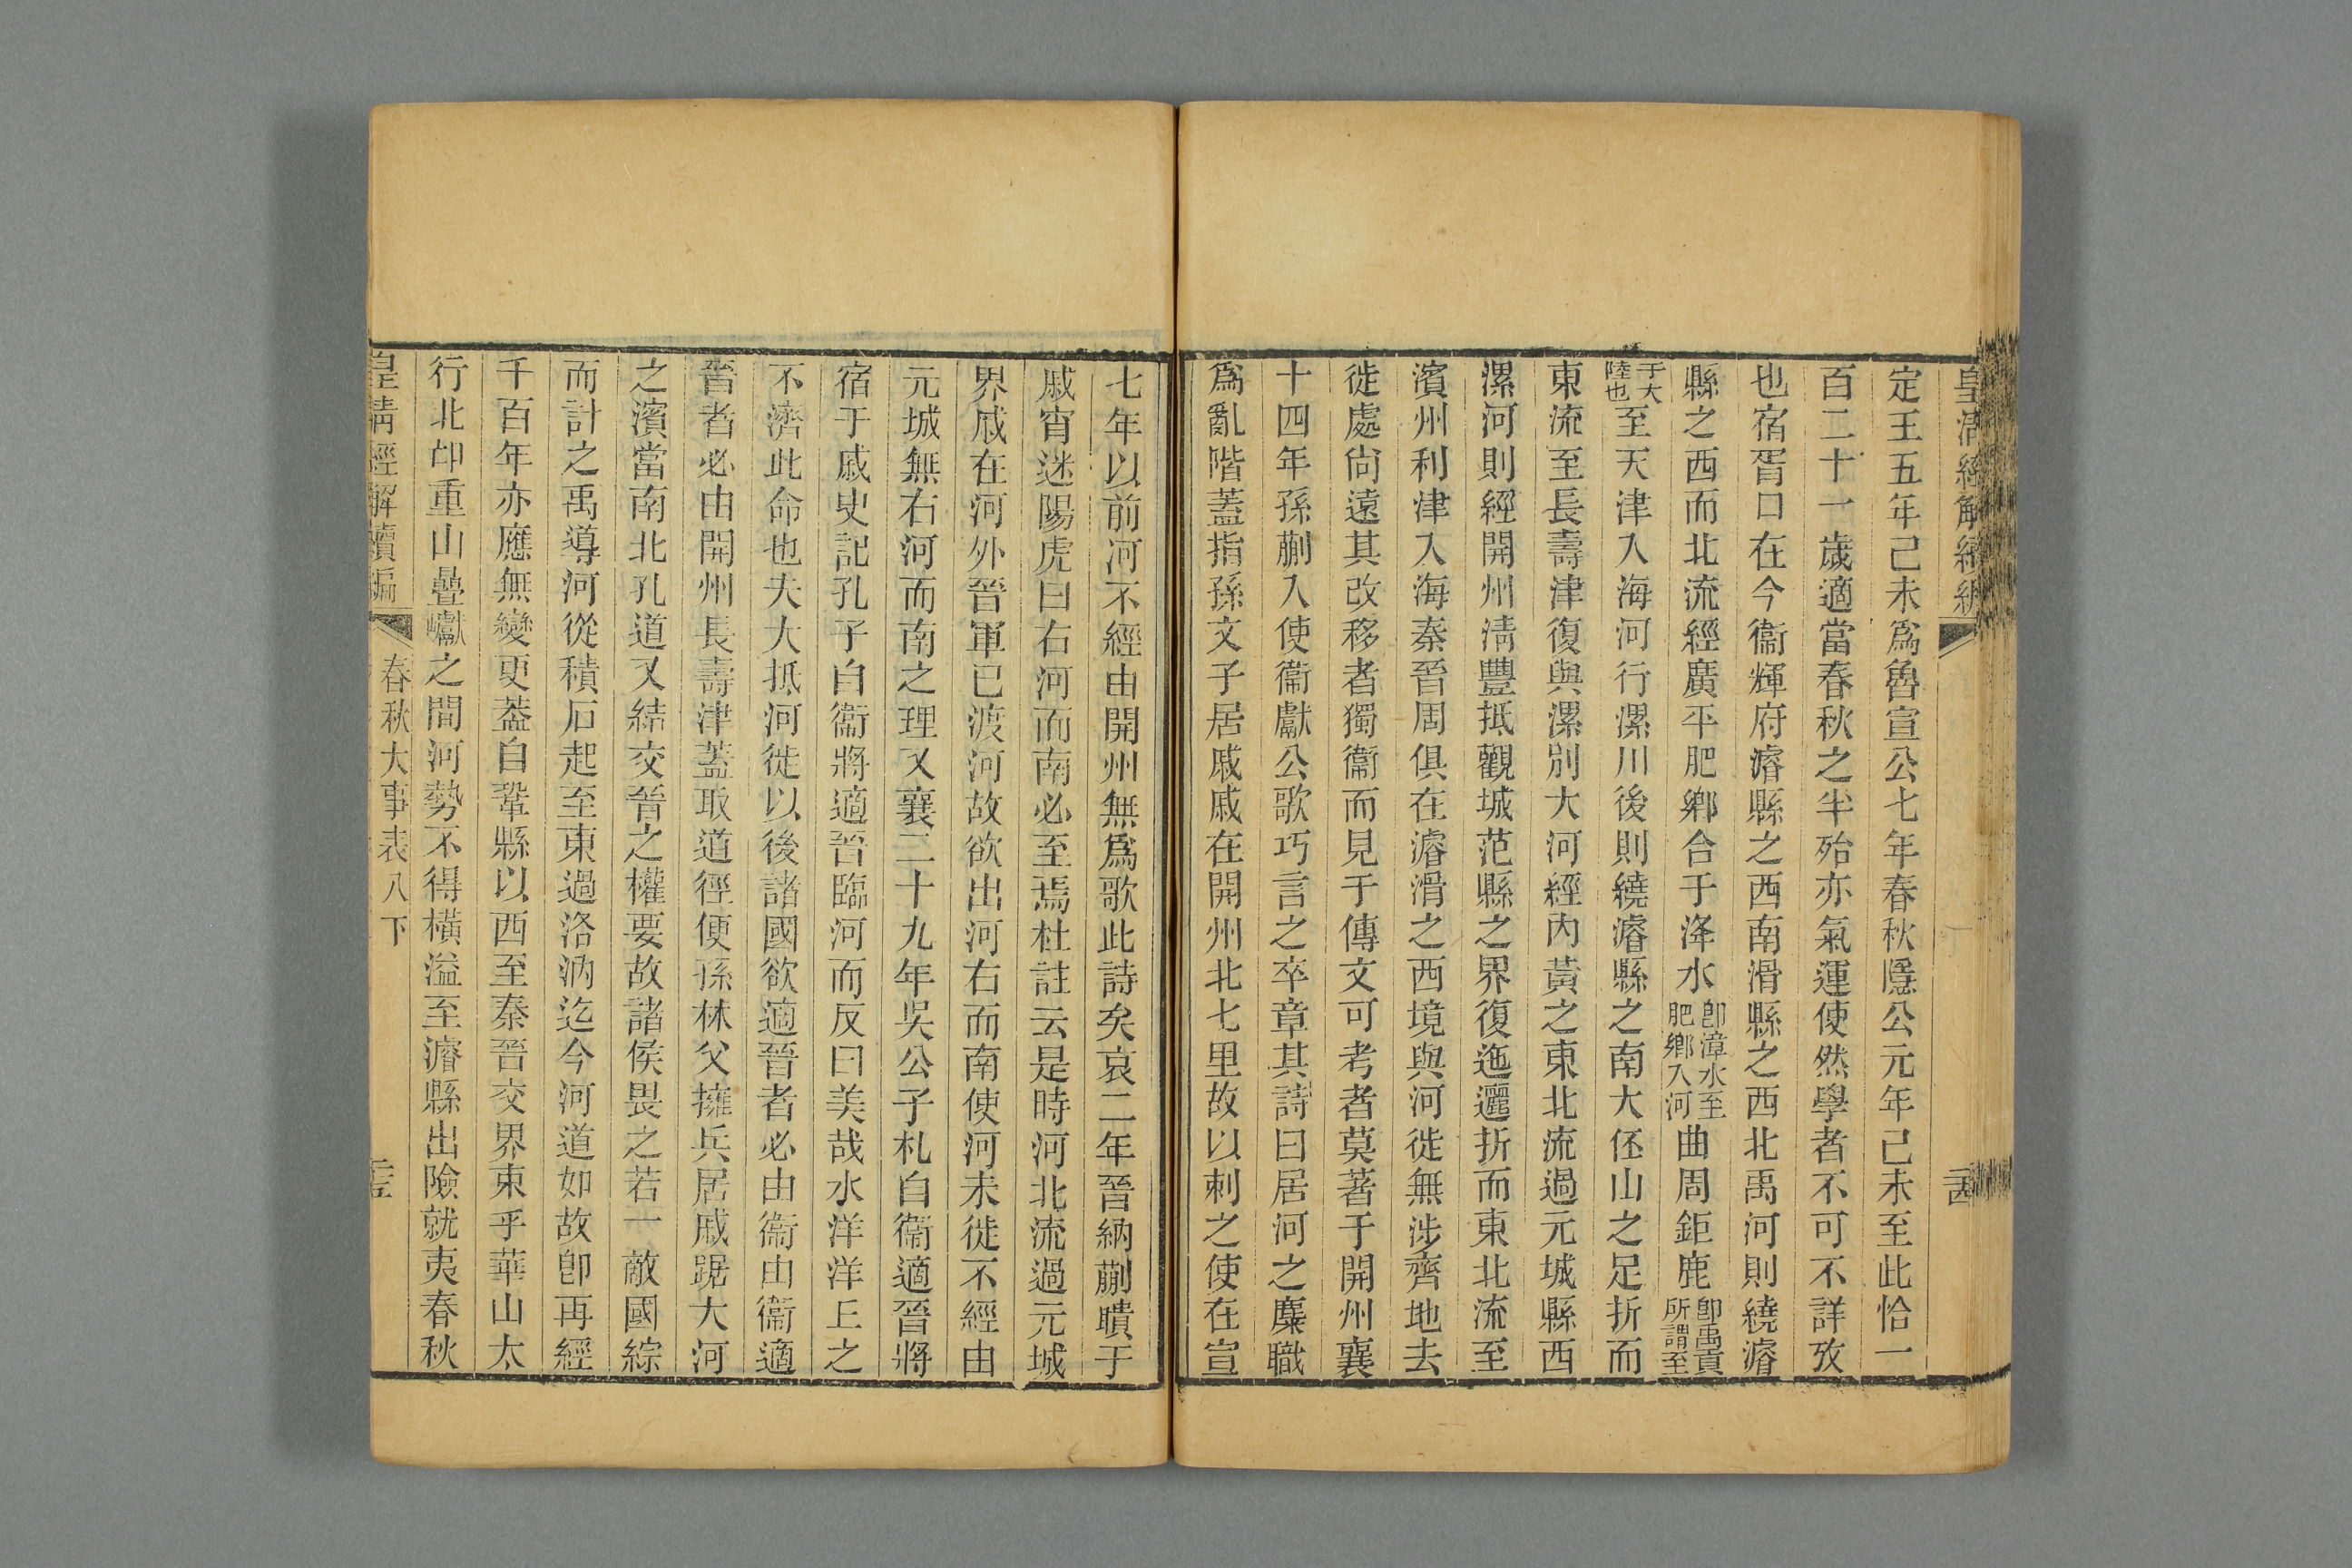 皇清經解續編
二四
定王五年己未爲魯宣公七年春秋隱公元年己未至此恰一
百二十一歲適當春秋之半殆亦氣運使然學者不可不詳攷
也宿胥口在今衞輝府濬縣之西南滑縣之西北禹河則繞濬
縣之西而北流經廣平肥鄉合于洚水卽漳水至肥鄉入河曲周鉅鹿卽禹貢所謂至
于大陸也至天津入海河行漯川後則繞濬縣之南大伾山之足折而
東流至長壽津復與漯別大河經內黃之東北流過元城縣西
漯河則經開州淸豐抵觀城范縣之界復迤邐折而東北流至
濱州利津入海秦晉周俱在濬滑之西境與河徙無涉齊地去
徙處尙遠其改移者獨衞而見于傳文可考者莫著于開州襄
十四年孫蒯入使衞獻公歌巧言之卒章其詩曰居河之麋職
爲亂階蓋指孫文子居戚戚在開州北七里故以刺之使在宣
七年以前河不經由開州無爲歌此詩矣哀二年晉納蒯聵于
戚宵迷陽虎曰右河而南必至焉杜註云是時河北流過元城
界戚在河外晉軍已渡河故欲出河右而南使河未徙不經由
元城無右河而南之理又襄二十九年吳公子札自衞適晉將
宿于戚史記孔子自衞將適晉臨河而反曰美哉水洋洋丘之
不濟此命也夫大抵河徙以後諸國欲適晉者必由衞由衞適
晉者必由開州長壽津蓋取道徑便孫林父擁兵居戚踞大河
之濱當南北孔道又結交晉之權要故諸侯畏之若一敵國綜
而計之禹導河從積石起至東過洛汭迄今河道如故卽再經
千百年亦應無變更蓋自鞏縣以西至秦晉交界東乎華山太
行北邙重山疊巘之間河勢不得橫溢至濬縣出險就夷春秋
皇清經解續編
春秋大事表八下
二五